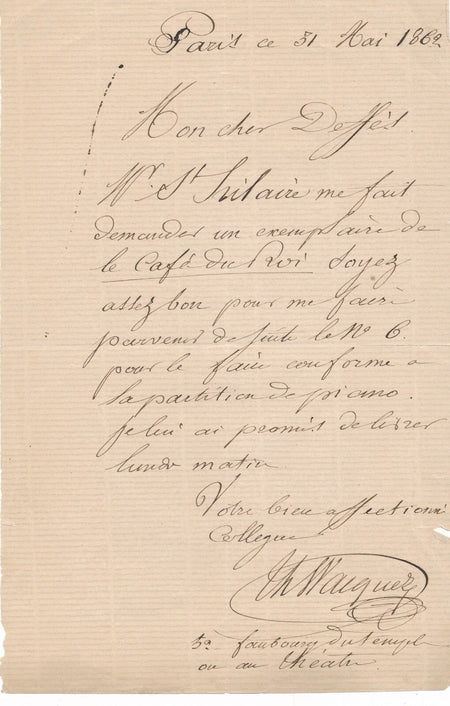 Paris ce 31 Mai 1862
Mon cher
Mr. St hilaire me fait
demander un exemplaire de
le Café du Roi Soyez
assez bon pour me faire
parvenir de suite le No 6.
pour le faire conforme a
la partition de piano.
je lui ai promis de livrer
lundi matin
Votre bien affectionné
Collegue
Th Wacquez
faubourg du temple
ou au théâtre.